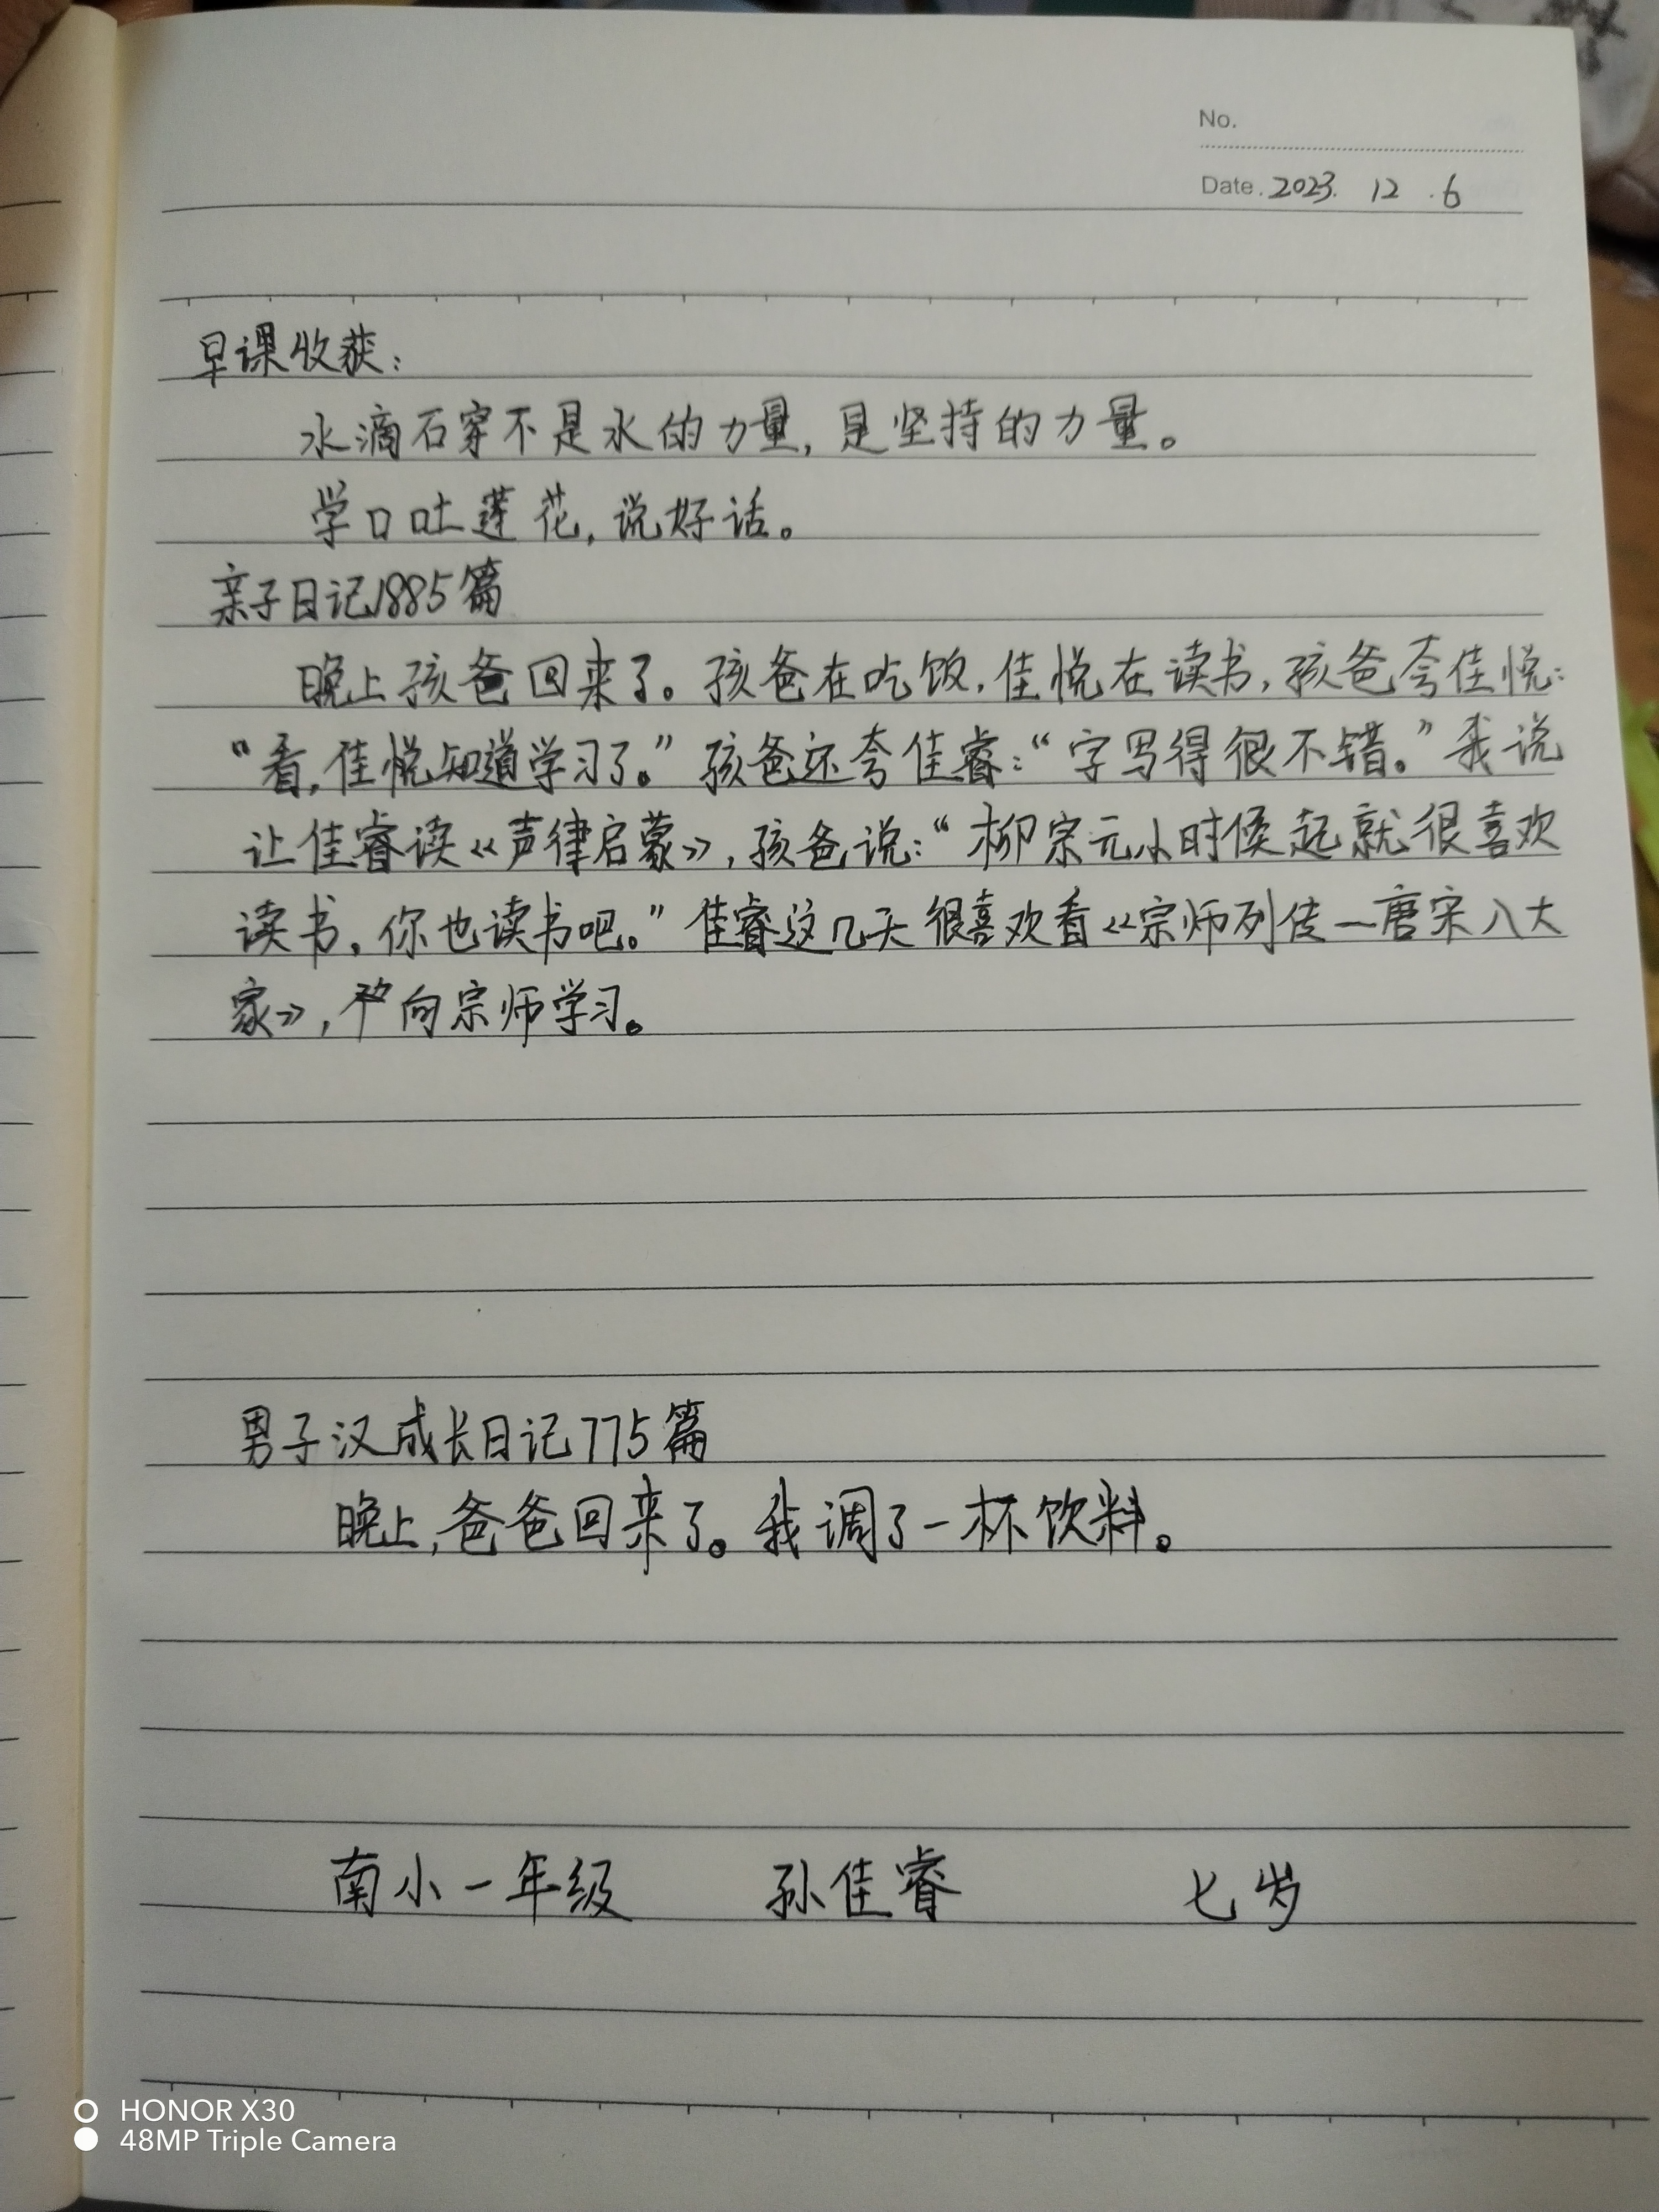 No.
Date. 2023. 12 .6
早课收获:
水滴石穿不是水的力量,是坚持的力量。
学口吐莲花,说好话。
亲子日记1885篇
晚上孩爸回来了。孩爸在吃饭,佳悦在读书,孩爸夸佳悦:
“看,佳悦知道学习了。”孩爸还夸佳睿:“字写得很不错。”我说
让佳睿读《声律启蒙》,孩爸说:“柳宗元小时候起就很喜欢
读书,你也读书吧。”佳睿这几天很喜欢看《宗师列传—唐宋八大
家》,向宗师学习。
男子汉成长日记775篇
晚上,爸爸回来了。我调了一杯饮料。
南小一年级 孙佳睿 七岁
HONOR X30
48MP Triple Camera